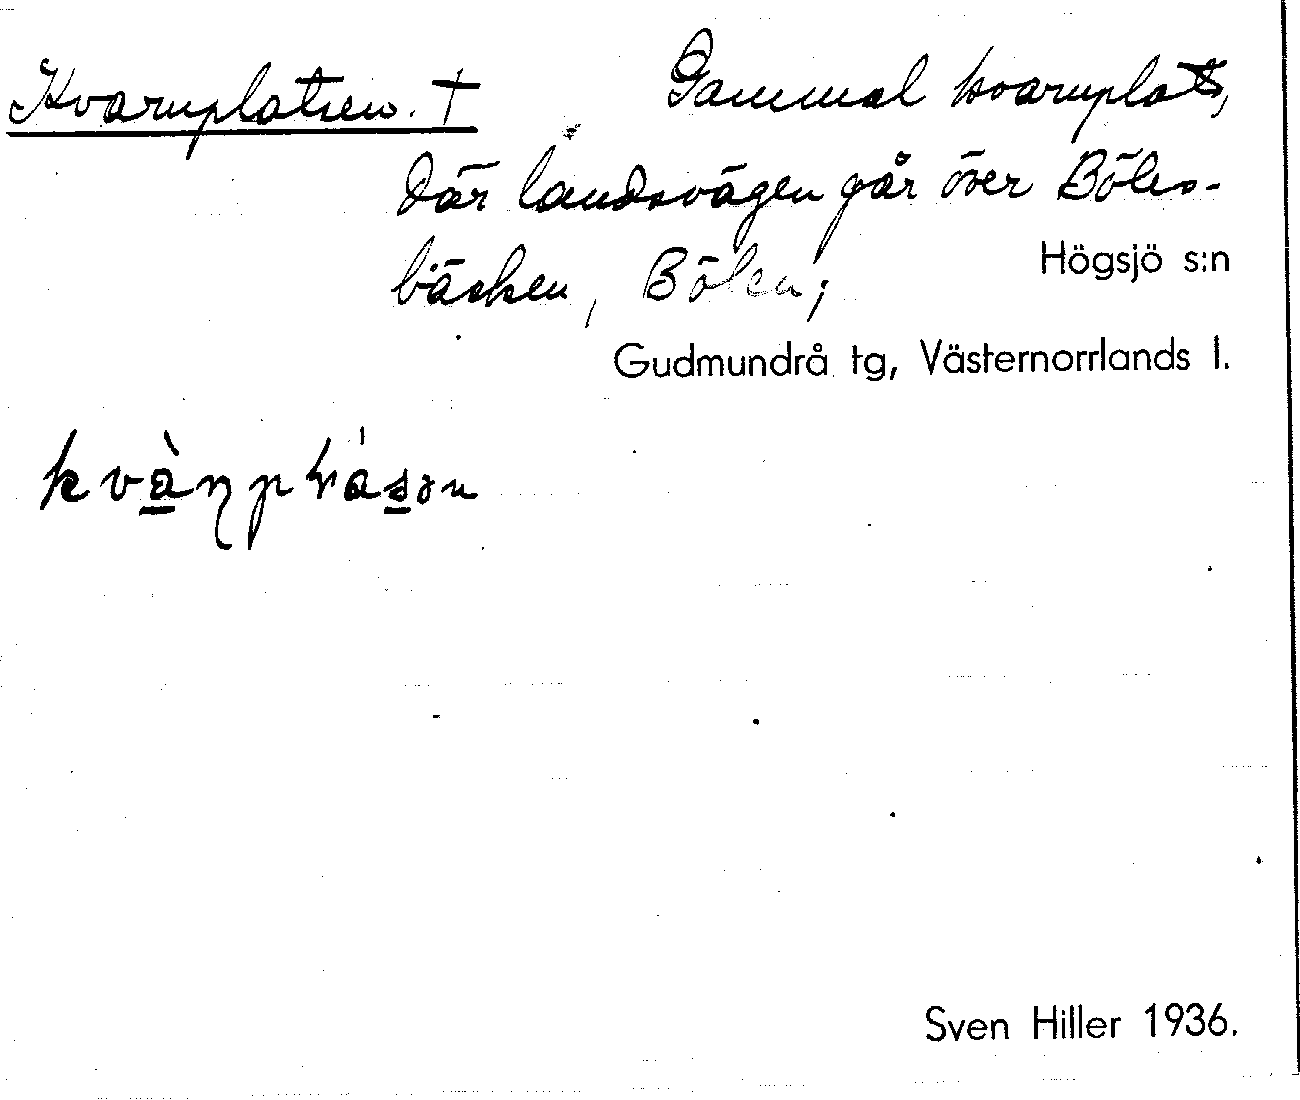 Kvarnplatsen. † Gammal kvarnplats,
där landsvägen går över Böles-
bäcken, Bölen;
Högsjö s:n
Gudmundrå tg, Västernorrlands l.
Sven Hiller 1936.